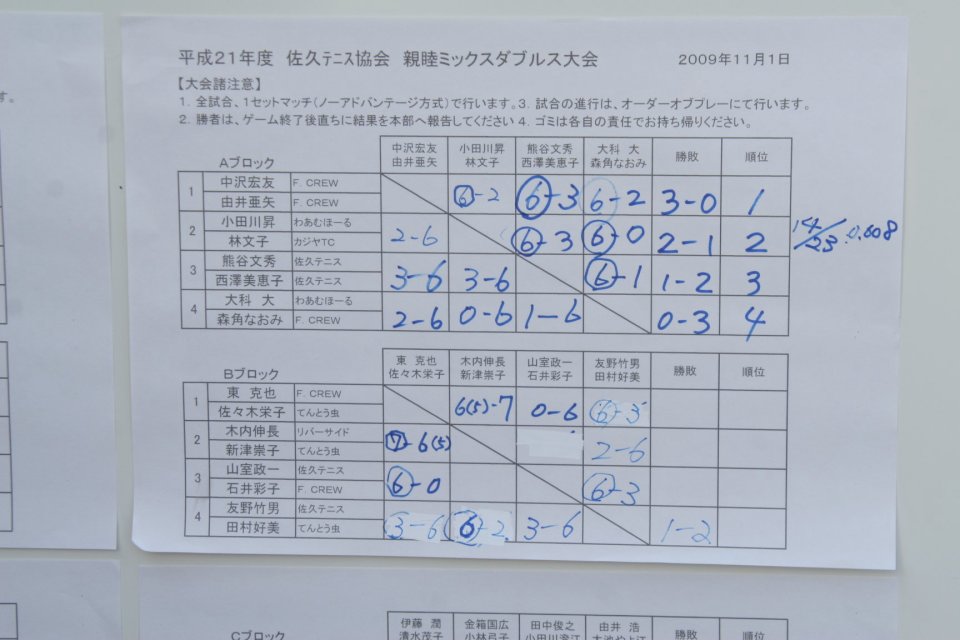 平成21年度 佐久テニス協会 親睦ミックスダブルス大会 2009年11月1日
【大会諸注意】
1. 全試合、1セットマッチ(ノーアドバンテージ方式)で行います。3. 試合の進行は、オーダーオブプレーにて行います。
2. 勝者は、ゲーム終了後直ちに結果を本部へ報告してください 4. ゴミは各自の責任でお持ち帰りください。
す。
Aブロック 中沢宏友 由井亜矢 小田川昇 林文子 熊谷文秀 西澤美恵子 大科 大 森角なおみ 勝敗 順位
1 中沢宏友 F. CREW 由井亜矢 F. CREW 6-2 6-3 6-2 3-0 1
2 小田川昇 わあむほーる 林文子 カジヤTC 2-6 6-3 6-0 2-1 2 14/23 0.608
3 熊谷文秀 佐久テニス 西澤美恵子 佐久テニス 3-6 3-6 6-1 1-2 3
4 大科 大 わあむほーる 森角なおみ F. CREW 2-6 0-6 1-6 0-3 4
Bブロック 東 克也 佐々木栄子 木内伸長 新津崇子 山室政一 石井彩子 友野竹男 田村好美 勝敗 順位
1 東 克也 F. CREW 佐々木栄子 てんとう虫 6(5)-7 0-6 6-3
2 木内伸長 リバーサイド 新津崇子 てんとう虫 7-6(5) 2-6
3 山室政一 佐久テニス 石井彩子 F. CREW 6-0 6-3
4 友野竹男 佐久テニス 田村好美 てんとう虫 3-6 6-2 3-6 1-2
Cブロック 伊藤 潤 清水茂子 金箱国広 小林弓子 田中俊之 由井 浩 勝敗 順位